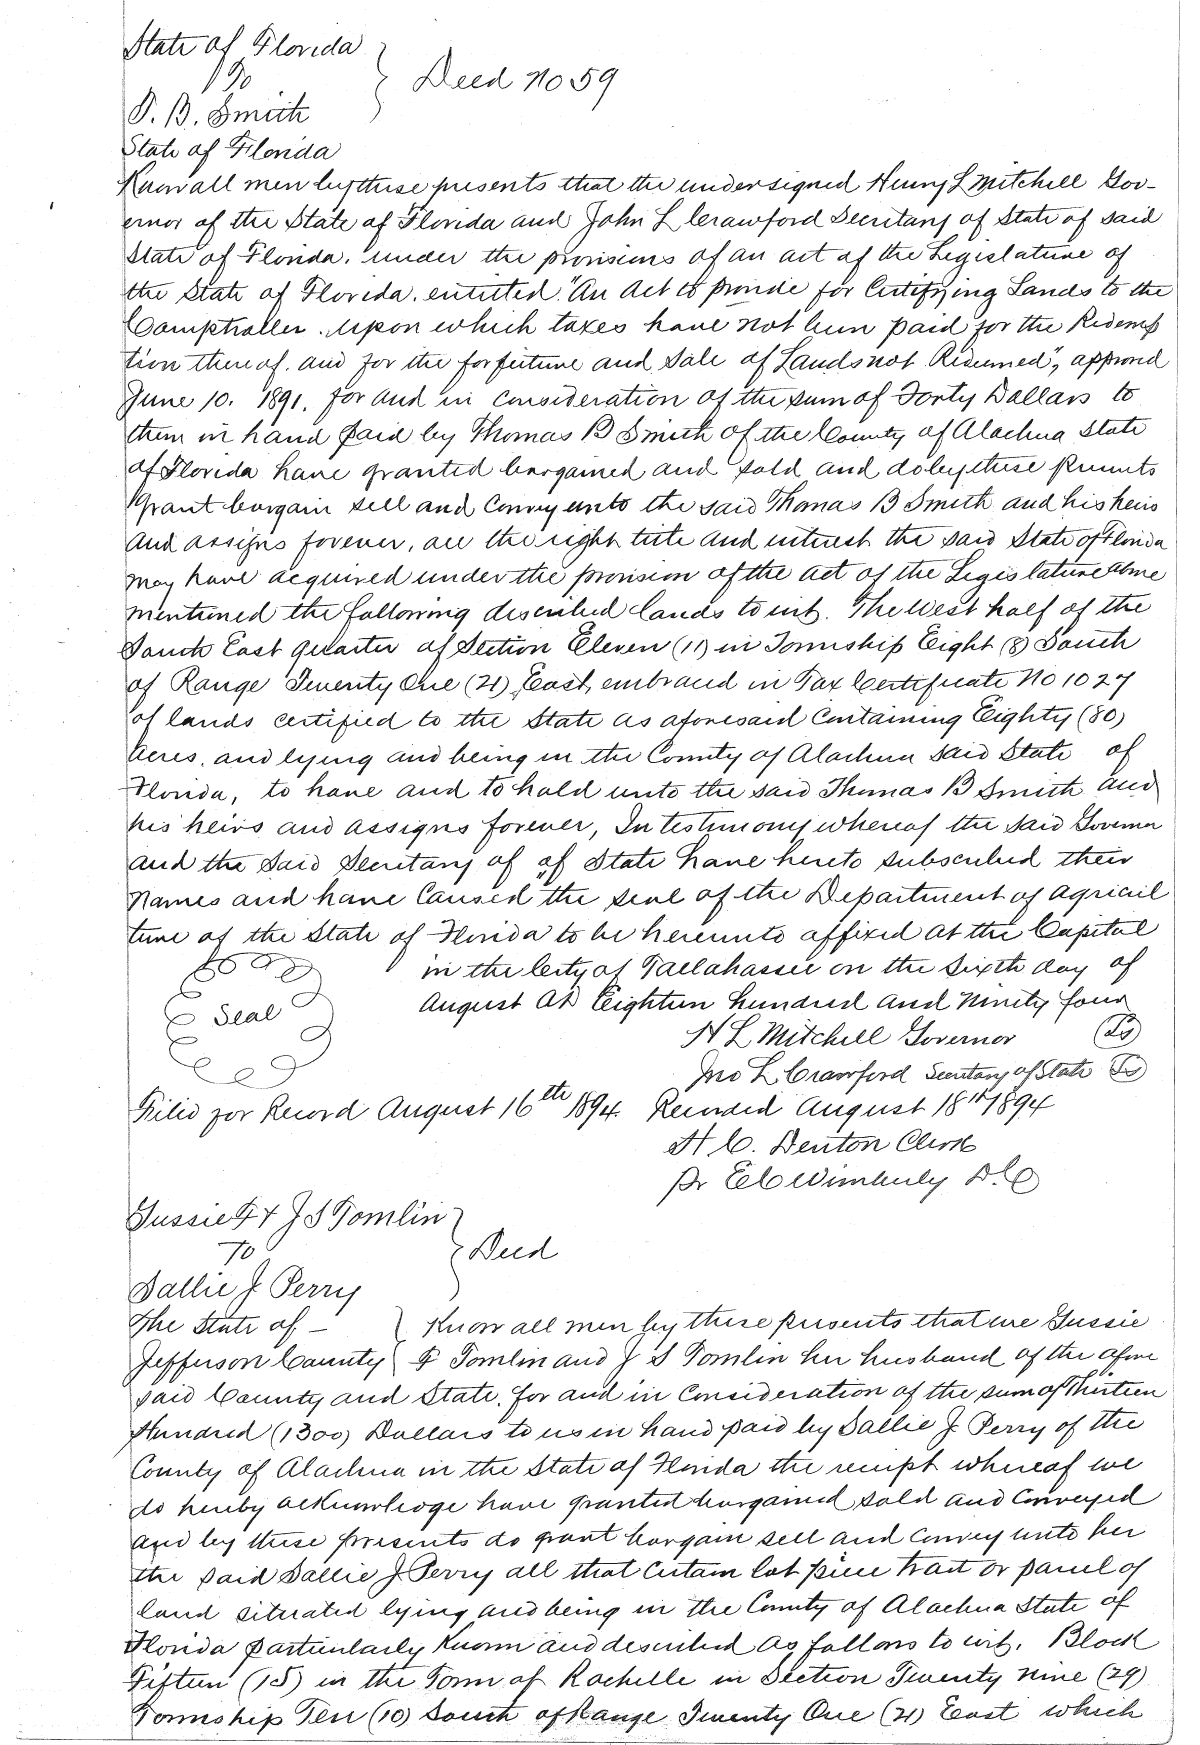 State of Florida
To
T. B. Smith
Deed No 59
State of Florida
Know all men by these presents that the undersigned Henry L Mitchell Gov-
ernor of the State of Florida and John L Crawford Secretary of State of said
State of Florida. under the provisions of an act of the Legislature of
the State of Florida. entitled "An Act to provide for Certifying Lands to the
Comptroller. Upon which taxes have not been paid for the Redemp
tion thereof. and for the forfeiture and Sale of Lands not Redeemed", approved
June 10. 1891. for and in consideration of the sum of Forty Dollars to
them in hand paid by Thomas B Smith of the County of Alachua State
of Florida have granted bargained and sold and do by these presents
grant bargain sell and convey unto the said Thomas B Smith and his heirs
and assigns forever, all the right title and interest the said State of Florida
may have acquired under the provision of the act of the Legislature above
mentioned the following described lands to wit. The West half of the
South East quarter of Section Eleven (11) in Township Eight (8) South
of Range Twenty One (21) East, embraced in Tax Certificate No 1027
of lands certified to the State as aforesaid Containing Eighty (80)
acres. and lying and being in the County of Alachua said State of
Florida, to have and to hold unto the said Thomas B Smith and
his heirs and assigns forever, In testimony whereof the said Governor
and the said Secretary of of State have hereto subscribed their
names and have caused the seal of the Department of Agricul
ture of the State of Florida to be hereunto affixed at the Capital
in the City of Tallahassee on the sixth day of
August AD Eighteen hundred and Ninety four
Seal
H L Mitchell Governor (LS)
Jno L Crawford Secretary of State (LS)
Filed for Record August 16th 1894. Recorded August 18th 1894
H. C. Denton Clerk
Pr E C Wimberly D.C.
Gussie F & J S Tomlin
To
Sallie J Perry
Deed
The State of - Know all men by these presents that we Gussie
Jefferson County F Tomlin and J S Tomlin her husband of the afore
said County and State. for and in consideration of the sum of Thirteen
Hundred (1300) Dollars to us in hand paid by Sallie J Perry of the
County of Alachua in the State of Florida the receipt whereof we
do hereby acknowledge have granted bargained sold and conveyed
and by these presents do grant bargain sell and convey unto her
the said Sallie J. Perry all that certain lot piece tract or parcel of
land situated lying and being in the County of Alachua State of
Florida particularly known and described as follows to wit. Block
Fifteen (15) in the Town of Rochelle in Section Twenty nine (29)
Township Ten (10) South of Range Twenty One (21) East which